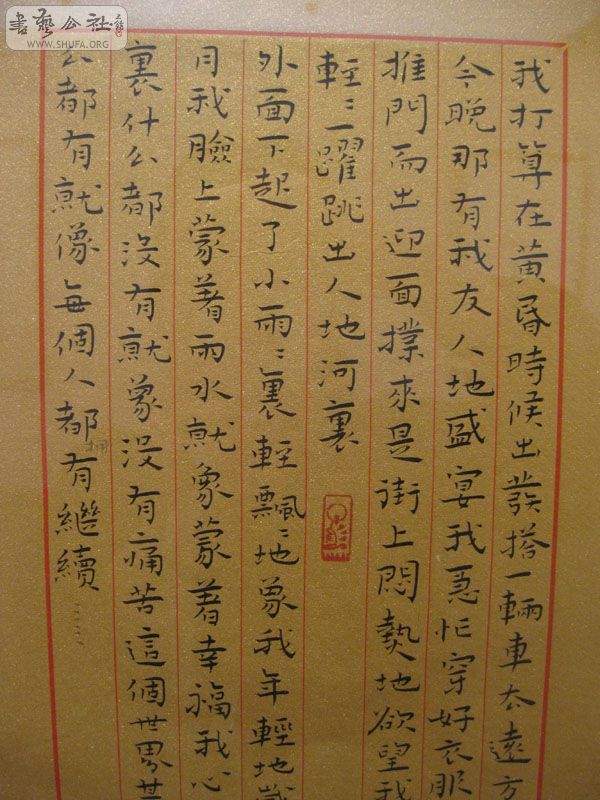 書藝公社
WWW.SHUFA.ORG
我打算在黄昏時候出發搭一輛車去遠方
今晚那有我友人地盛宴我急忙穿好衣服
推門而出迎面撲來是街上悶熱地欲望我
輕〻一躍跳出人地河裏
外面下起了小雨〻裏輕飄〻地象我年輕地歲
月我臉上蒙着雨水就象蒙着幸福我心
裏什么都没有就象没有痛苦這個世界甚
么都有就像每個人都擁有繼續……